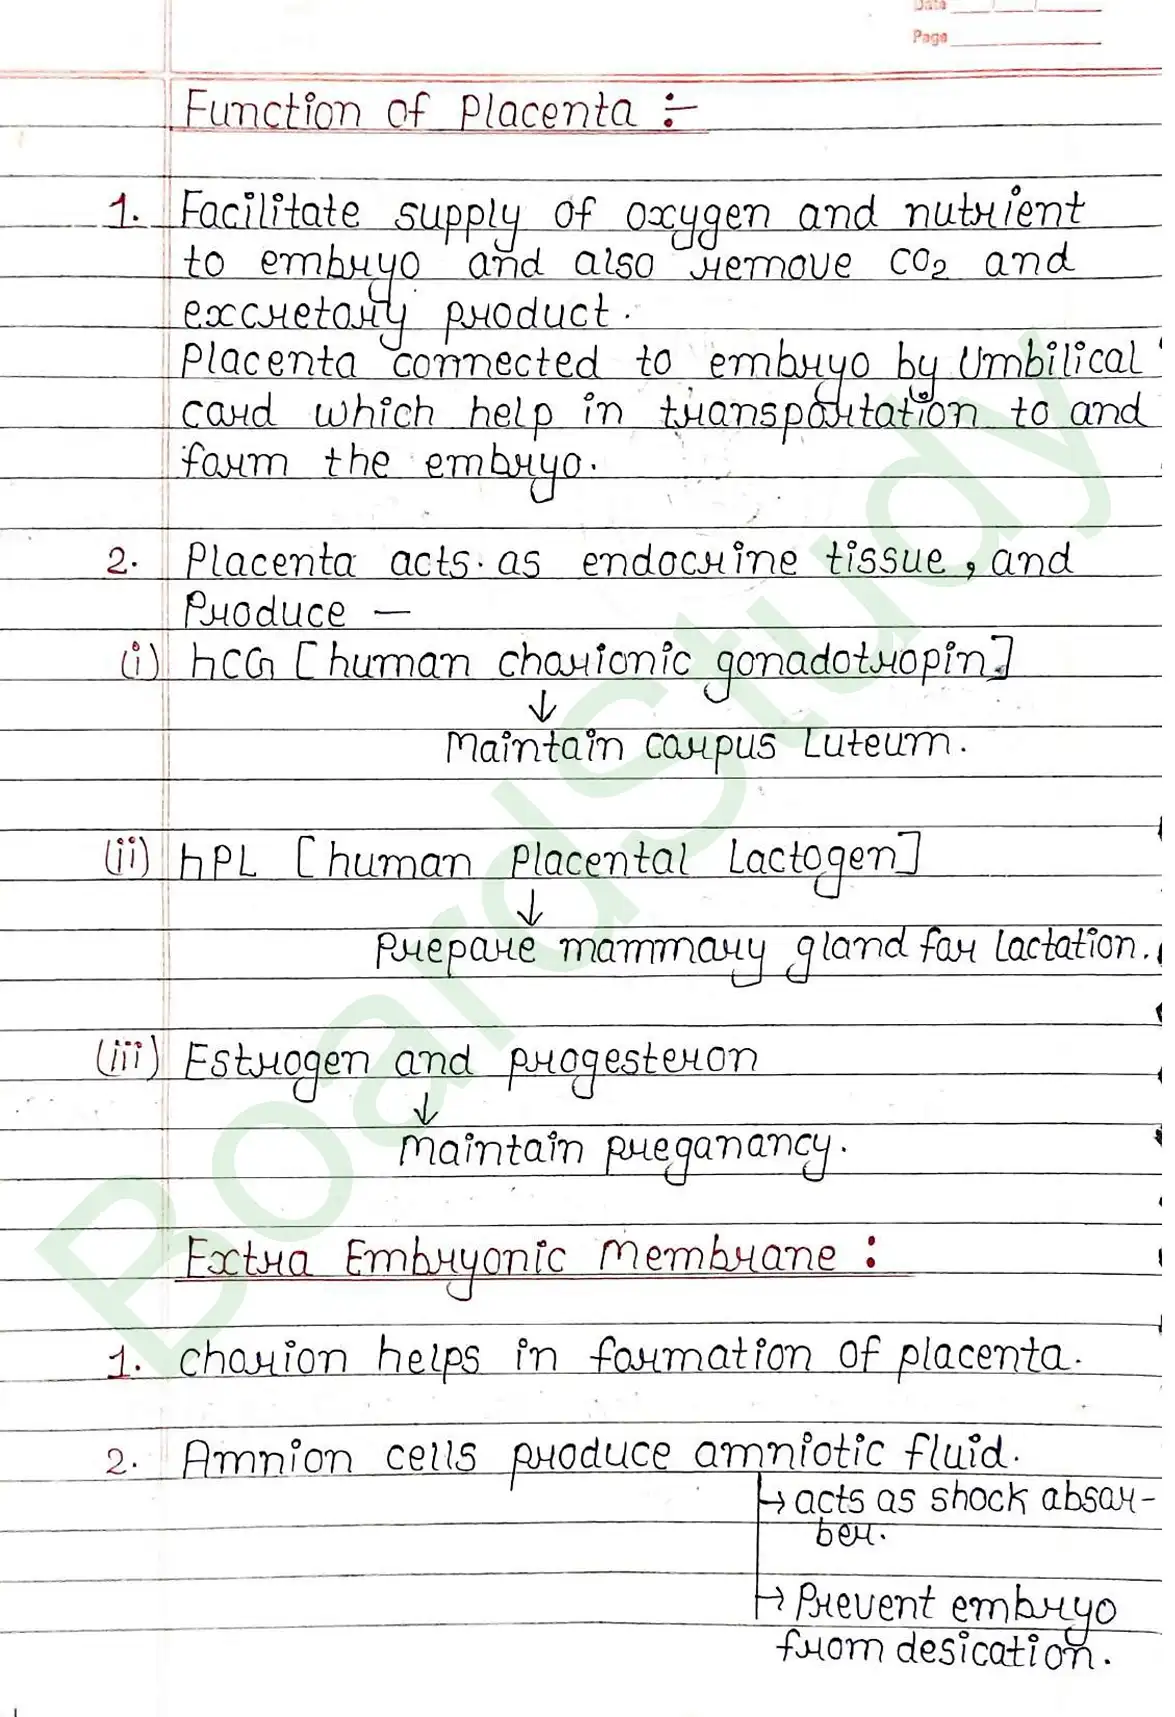 Date
Page
Function of Placenta :-
1. Facilitate supply of oxygen and nutrient
to embryo and also remove CO2 and
excretory product.
Placenta connected to embryo by Umbilical
cord which help in transportation to and
form the embryo.
2. Placenta acts as endocrine tissue, and
Produce —
(i) hCG [human chorionic gonadotropin]
↓
Maintain corpus Luteum.
(ii) hPL [human Placental Lactogen]
↓
Prepare mammary gland for lactation.
(iii) Estrogen and progesteron
↓
Maintain preganancy.
Extra Embryonic Membrane :
1. chorion helps in formation of placenta.
2. Amnion cells produce amniotic fluid.
→ acts as shock absor-
ber.
→ Prevent embryo
from desication.
BoardStudy